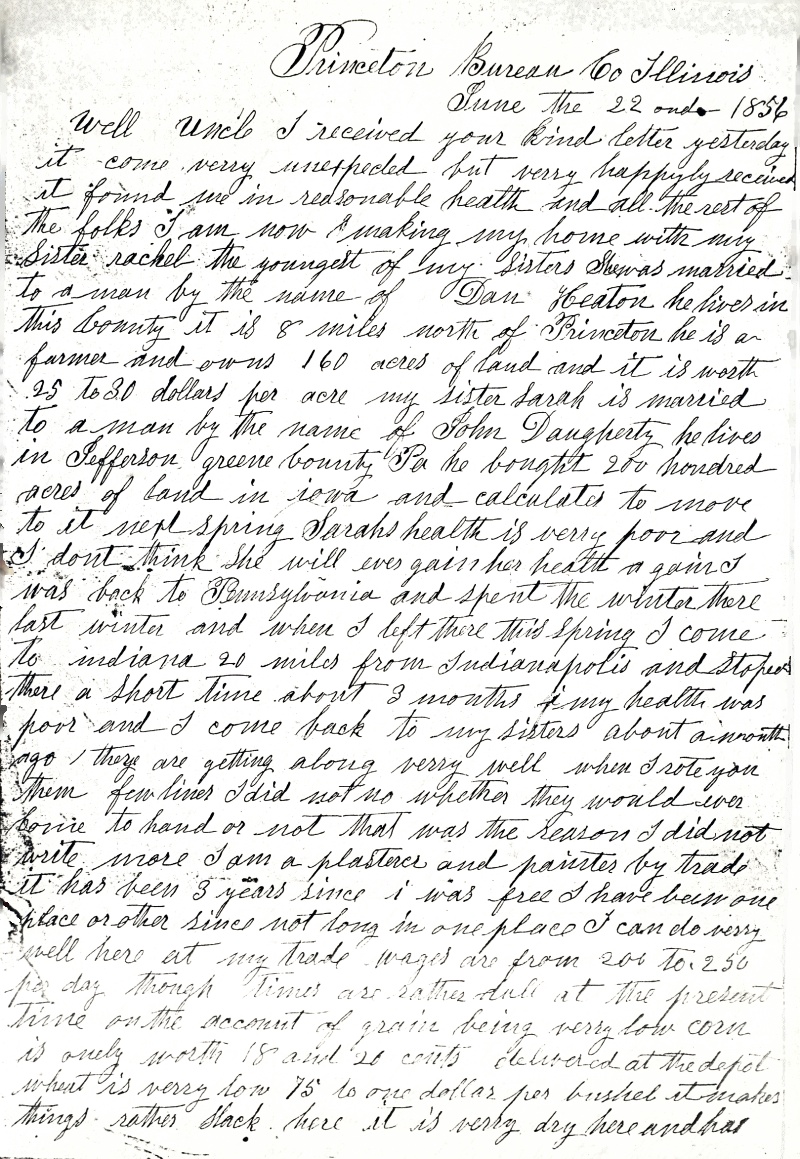 Princeton Bureau Co Illinois
June the 22 ond - 1856
Well Uncle I received your kind letter yesterday
it come verry unexpected but verry happyly received
it found me in reasonable health and all the rest of
the folks I am now making my home with my
Sister rachel the youngest of my Sisters She was married
to a man by the name of Dan Heaton he lives in
this County it is 8 miles north of Princeton he is a
farmer and owns 160 acres of land and it is worth
25 to 30 dollars per acre my sister Sarah is married
to a man by the name of John Daugherty he lives
in Jefferson greene County Pa he bought 200 hondred
acres of land in iowa and calculates to move
to it next spring Sarahs health is verry poor and
I dont think She will ever gain her health a gain I
was back to Pennsylvania and spent the winter there
last winter and when I left there this spring I come
to indiana 20 miles from Indianapolis and Stoped
there a Short time about 3 months & my health was
poor and I come back to my sisters about a month
ago / they are getting along verry well when I rote you
them few lines I did not no whether they would ever
Come to hand or not that was the reason I did not
write more I am a plasterer and painter by trade
it has been 3 years since i was free I have been one
place or other since not long in one place I can do verry
well here at my trade wages are from 200 to .250
per day though times are rather dull at the present
time on the account of grain being verry low corn
is onely worth 18 and 20 cents delivered at the depot
wheat is verry low 75 to one dollar per bushel it makes
things rather slack here it is verry dry here and has